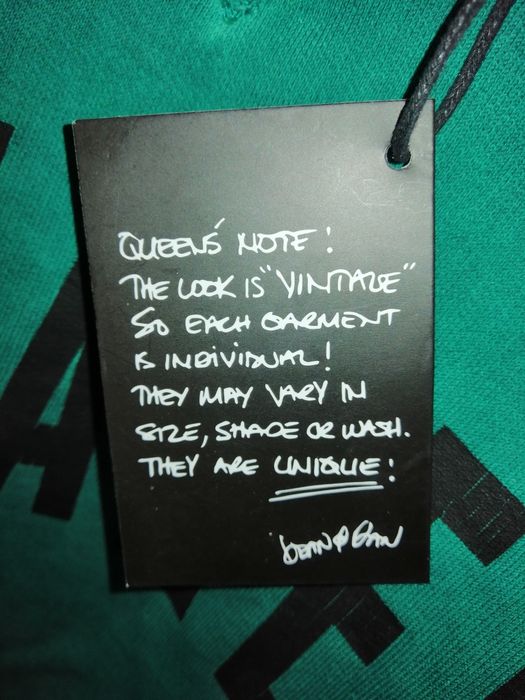 QUEENS' NOTE!
THE LOOK IS "VINTAGE"
SO EACH GARMENT
IS INDIVIDUAL!
THEY MAY VARY IN
SIZE, SHADE OR WASH.
THEY ARE UNIQUE!
DEAN & DAN